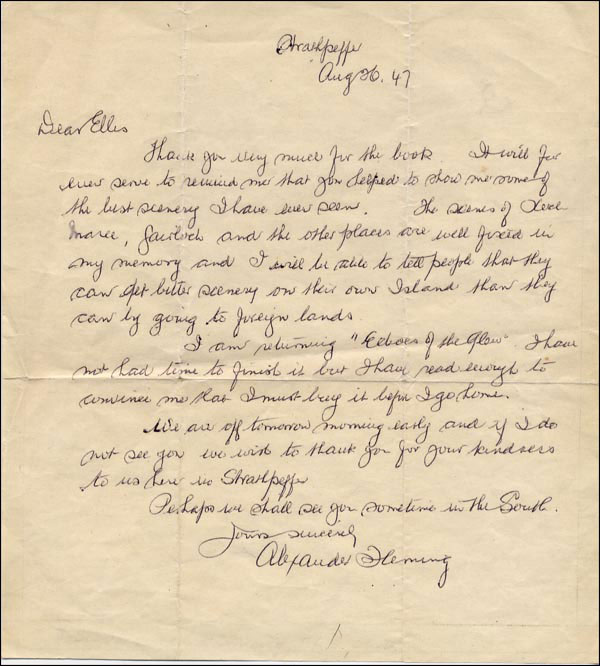 Strathpeffer
Aug 26. 47
Dear Ellis
Thank you very much for the book. It will for
ever serve to remind me that you helped to show me some of
the best scenery I have ever seen. The scenes of Loch
Maree, Gairloch and the other places are well fixed in
my memory and I will be able to tell people that they
can get better scenery on their own Island than they
can by going to foreign lands.
I am returning "Echoes of the Glen". I have
not had time to finish it but I have read enough to
convince me that I must buy it before I go home.
We are off tomorrow morning early and if I do
not see you we wish to thank you for your kindness
to us here in Strathpeffer
Perhaps we shall see you sometime in the South.
Yours sincerely
Alexander Fleming